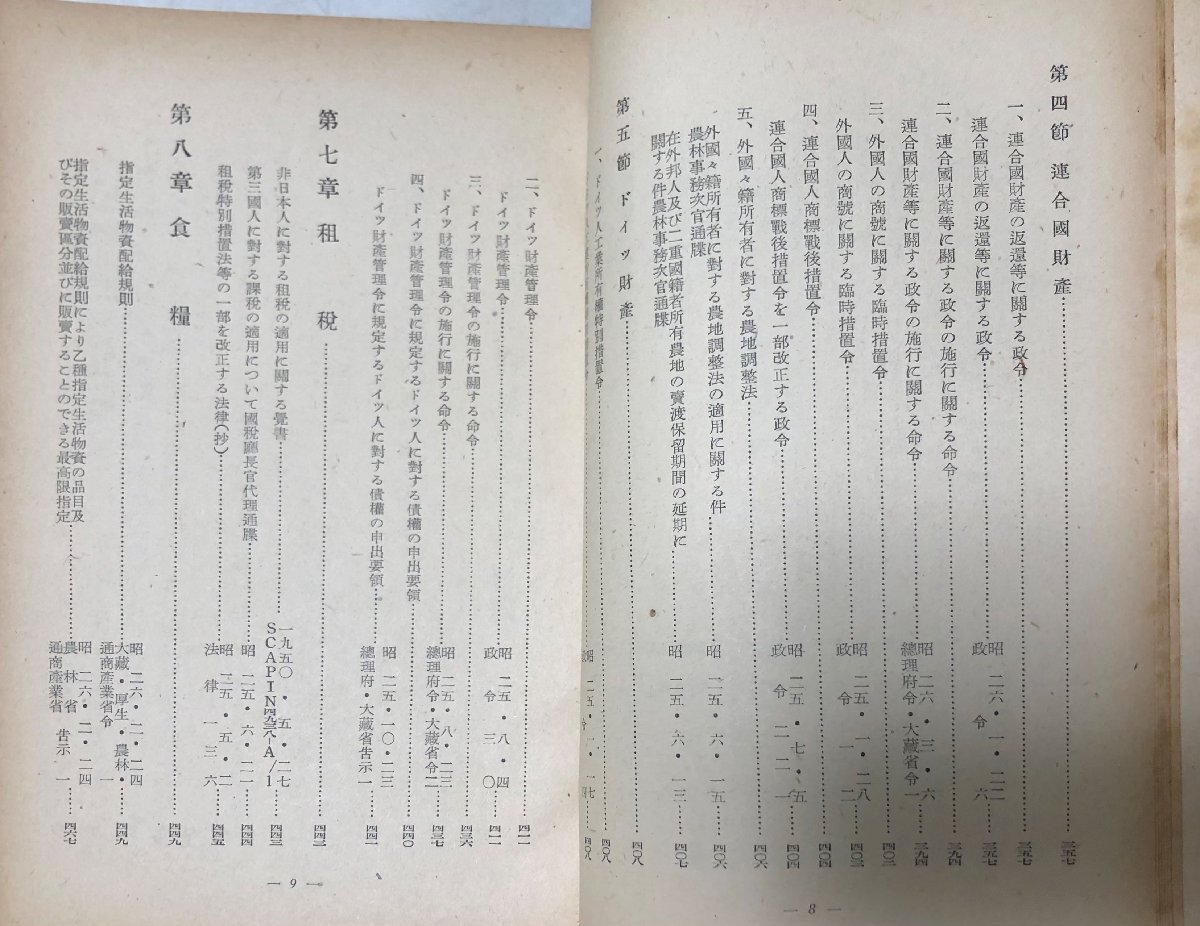 第四節 連合國財產……三五七
一、連合國財產の返還等に關する政令……三五七
連合國財產の返還等に關する政令……昭二六・一・二二 政令六……三五七
二、連合國財產等に關する政令の施行に關する命令……三九四
連合國財產等に關する政令の施行に關する命令……昭二六・三・六 總理府令・大藏省令一……三九四
三、外國人の商號に關する臨時措置令……四〇三
外國人の商號に關する臨時措置令……昭二五・一・二八 政令一二……四〇三
四、連合國人商標戰後措置令……四〇四
連合國人商標戰後措置令を一部改正する政令……昭二五・七・五 政令二二一……四〇四
五、外國々籍所有者に對する農地調整法……四〇六
外國々籍所有者に對する農地調整法の適用に關する件
農林事務次官通牒……昭二五・六・一五……四〇六
在外邦人及び二重國籍者所有農地の賣渡保留期間の延期に
關する件農林事務次官通牒……昭二五・六・一三……四〇七
第五節 ドイツ財產……四〇八
一、ドイツ人工業所有權特別措置令……四〇八
昭二五・一・一七……四〇八
二、ドイツ財產管理令……四一一
ドイツ財產管理令……昭二五・八・四 政令三〇……四一一
三、ドイツ財產管理令の施行に關する命令……四三六
ドイツ財產管理令の施行に關する命令……昭二五・八・二三 總理府令・大藏省令二……四三七
四、ドイツ財產管理令に規定するドイツ人に對する債權の申出要領……四四〇
ドイツ財產管理令に規定するドイツ人に對する債權の申出要領……昭二五・一〇・二三 總理府・大藏省吿示一……四四一
第七章 租稅……四四三
非日本人に對する租稅の適用に關する覺書……一九五〇・五・二七 SCAPIN四九三八-A/1……四四三
第三國人に對する課稅の適用について國稅廳長官代理通牒……昭二五・六・二一……四四四
租稅特別措置法等の一部を改正する法律(抄)……昭二五・五・二 法律一三六……四四五
第八章 食糧……四四九
指定生活物資配給規則……昭二六・二・二四 大藏・厚生・農林・通商產業省令一……四四九
指定生活物資配給規則により乙種指定生活物資の品目及
びその販賣區分並びに販賣することのできる最高限指定……昭二六・二・二四 農林省 通商產業省 吿示一……四六七
— 8 —
— 9 —